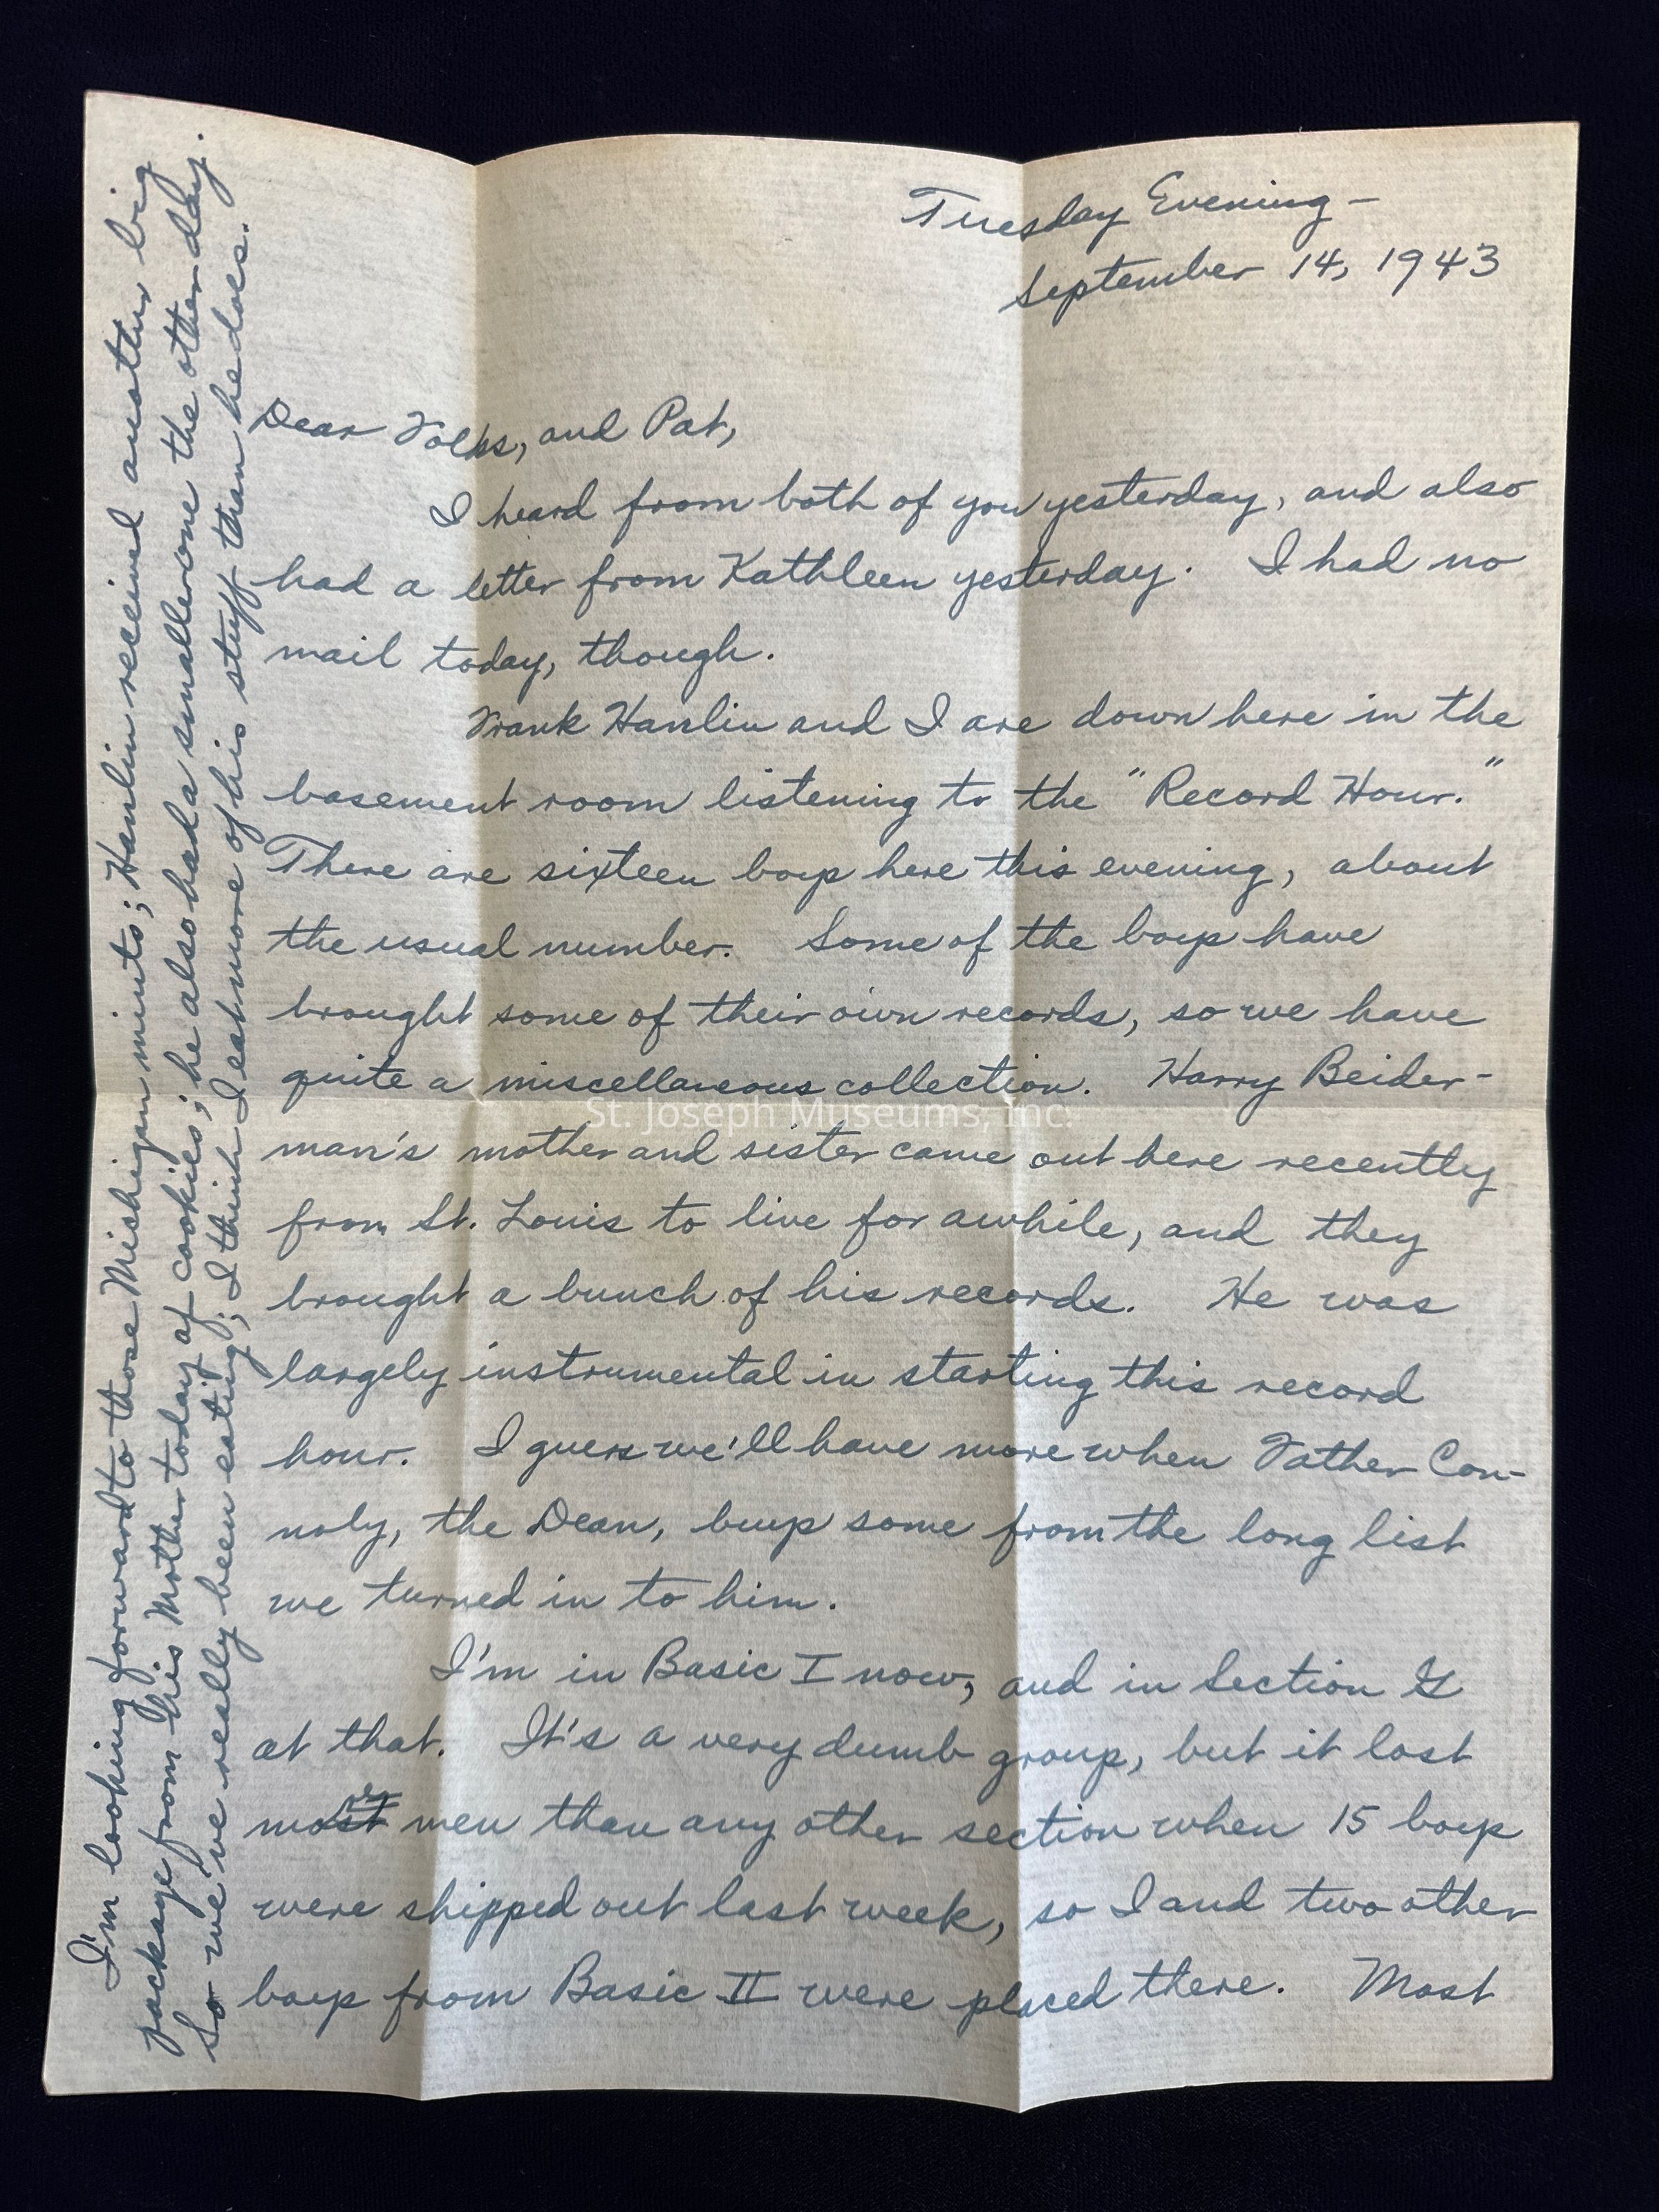 Tuesday Evening –
September 14, 1943
Dear Folks, and Pat,
I heard from both of you yesterday, and also
had a letter from Kathleen yesterday. I had no
mail today, though.
Frank Hamlin and I are down here in the
basement room listening to the "Record Hour."
There are sixteen boys here this evening, about
the usual number. Some of the boys have
brought some of their own records, so we have
quite a miscellaneous collection. Harry Beider-
man's mother and sister came out here recently
from St. Louis to live for awhile, and they
brought a bunch of his records. He was
largely instrumental in starting this record
hour. I guess we'll have more when Father Con-
noly, the Dean, buys some from the long list
we turned in to him.
I'm in Basic I now, and in Section
at that. It's a very dumb group, but it lost
more men than any other section when 15 boys
were shipped out last week, so I and two other
boys from Basic II were placed there. Most
I'm looking forward to those Michigan mints; Hamlin received another big
package from his Mother today of cookies; he also had a smaller one the other day.
So we've really been eating; I think I eat more of his stuff than he does.
St. Joseph Museums, Inc.